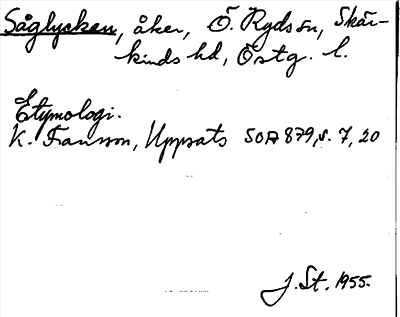 Såglycken, åker, Ö. Ryds sn, Skär-
kinds hd, Östg. l.
Etymologi.
K. Fransson, Uppsats SOA 879, s. 7, 20
J. St. 1955.